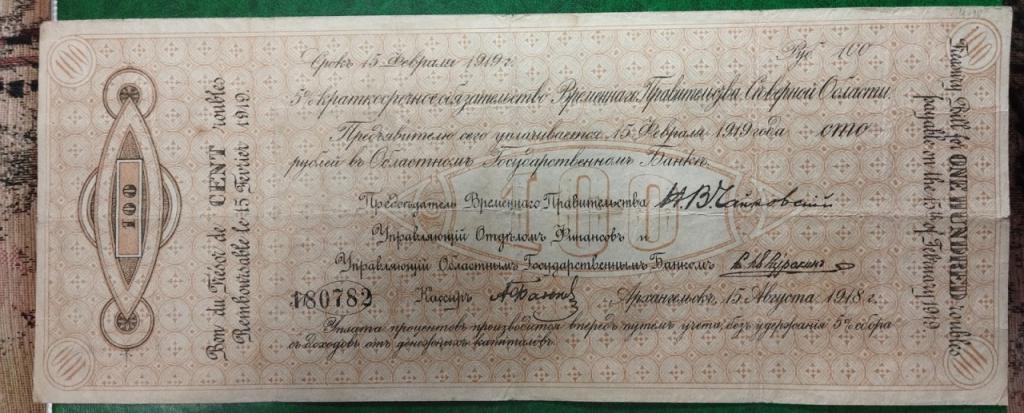 100
Bon du Trésor de CENT roubles
Remboursable le 15 Février 1919.
Срокъ 15 Февраля 1919 г.
Руб. 100
5% краткосрочное обязательство Временнаго Правительства Северной Области
Предъявителю сего уплачивается 15 Февраля 1919 года сто
рублей въ Областномъ Государственномъ Банкѣ.
100
Председатель Временнаго Правительства Н.В. Чайковский
Управляющій Отделомъ Финансовъ и
Управляющій Областнымъ Государственнымъ Банкомъ Куракинъ
180782 Кассиръ Архангельскъ, 15 Августа 1918 г.
Уплата процентовъ производится впередъ путемъ учета, безъ удержанія 5% сбора
съ доходовъ отъ денежныхъ капиталовъ.
Treasury Bill of ONE HUNDRED Roubles
payable on the 15th of February 1919
100
100
100
100